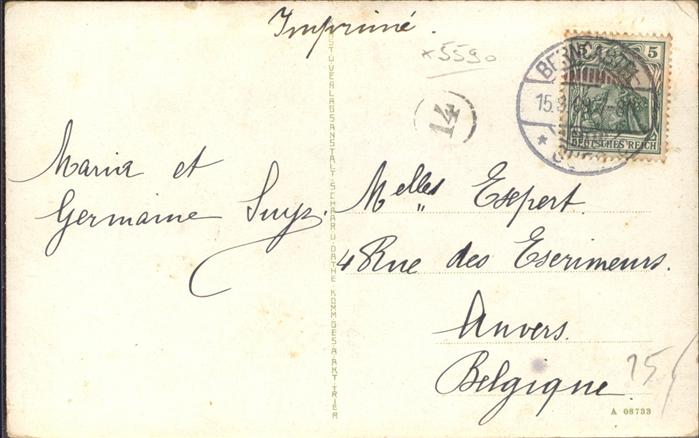 Imprimé.
x5590
14
5
BERNCASTEL
15.8.09
DEUTSCHES REICH
Maria et
Germaine Suys.
Melles Expert.
4 Rue des Escrimeurs.
Anvers.
Belgique.
KUNSTVERLAGSANSTALT SCHAAR U. DATHE KOMM GES A AKT TRIER
25
A 08733